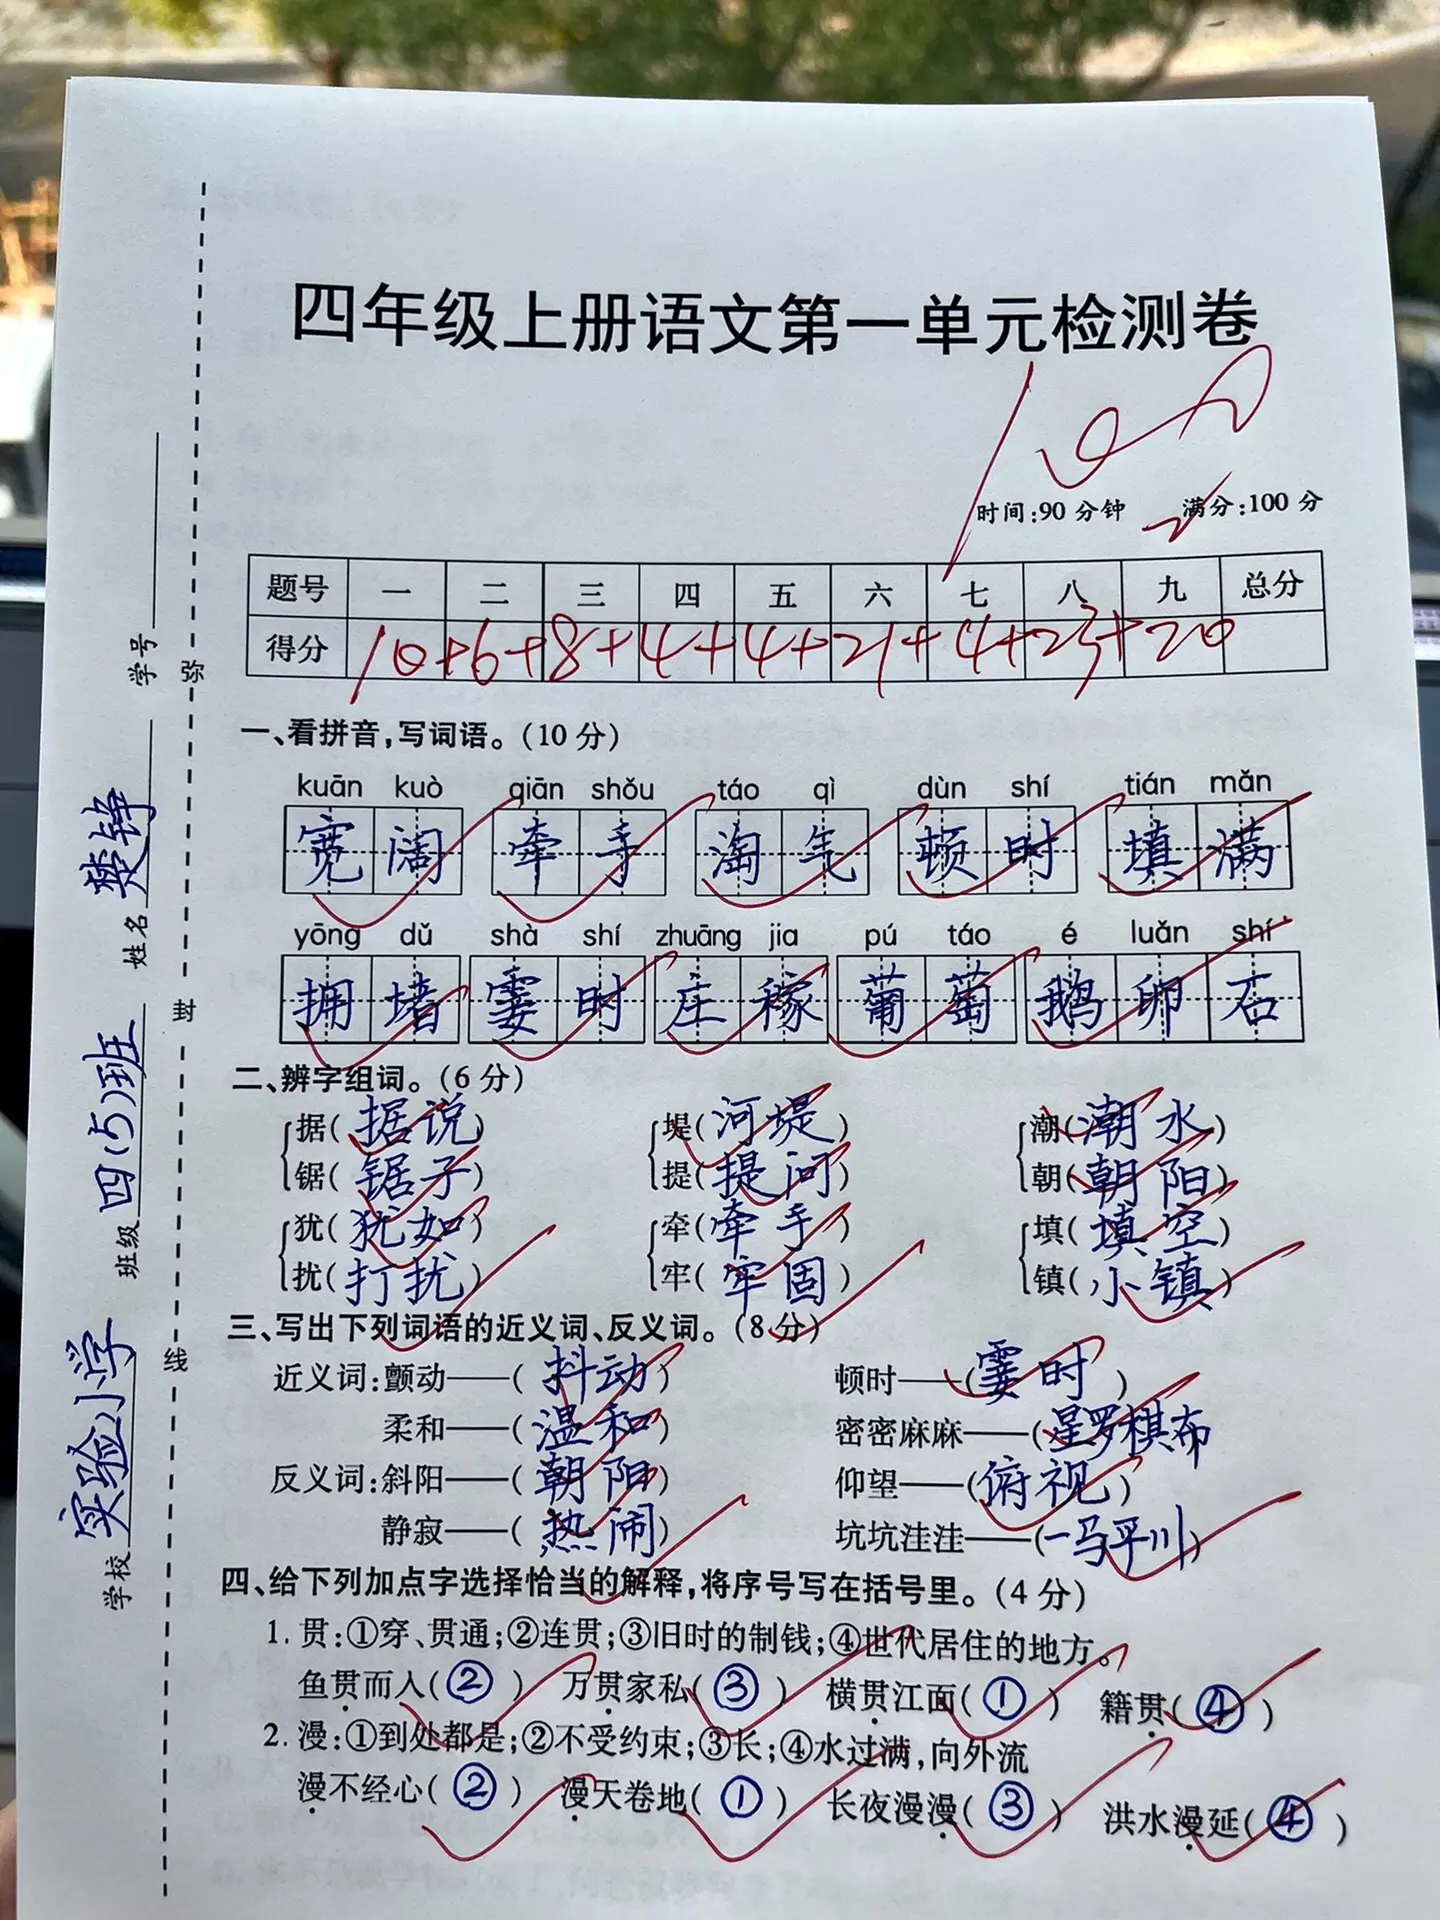 四年级上册语文第一单元检测卷
100
时间:90分钟 满分:100分
题号 一 二 三 四 五 六 七 八 九 总分
得分 10+6+8+4+4+21+4+23+20
一、看拼音,写词语。(10分)
kuān kuò qiān shǒu táo qì dùn shí tián mǎn
宽阔 牵手 淘气 顿时 填满
yōng dǔ shà shí zhuāng jia pú táo é luǎn shí
拥堵 霎时 庄稼 葡萄 鹅卵石
二、辨字组词。(6分)
据(据说) 堤(河堤) 潮(潮水)
锯(锯子) 提(提问) 朝(朝阳)
犹(犹如) 牵(牵手) 填(填空)
扰(打扰) 牢(牢固) 镇(小镇)
三、写出下列词语的近义词、反义词。(8分)
近义词:颤动——(抖动) 顿时——(霎时)
柔和——(温和) 密密麻麻——(星罗棋布)
反义词:斜阳——(朝阳) 仰望——(俯视)
静寂——(热闹) 坑坑洼洼——(一马平川)
四、给下列加点字选择恰当的解释,将序号写在括号里。(4分)
1. 贯:①穿、贯通;②连贯;③旧时的制钱;④世代居住的地方。
鱼贯而入(②) 万贯家私(③) 横贯江面(①) 籍贯(④)
2. 漫:①到处都是;②不受约束;③长;④水过满,向外流
漫不经心(②) 漫天卷地(①) 长夜漫漫(③) 洪水漫延(④)
学校 实验小学 班级 四(5)班 姓名 楚铮 学号
弥 封 线